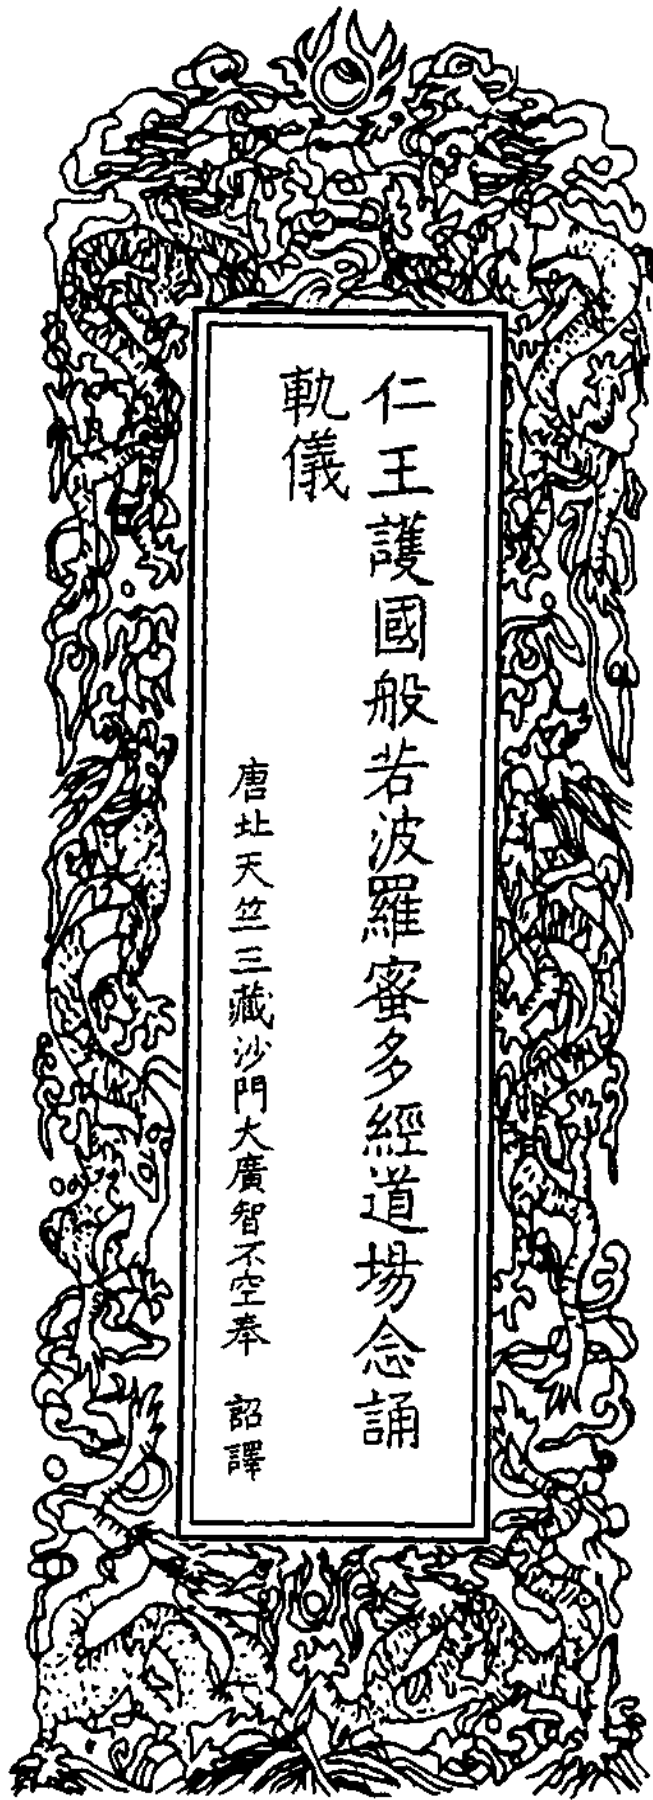 仁王護國般若波羅蜜多經道場念誦
軌儀
唐北天竺三藏沙門大廣智不空奉　詔譯